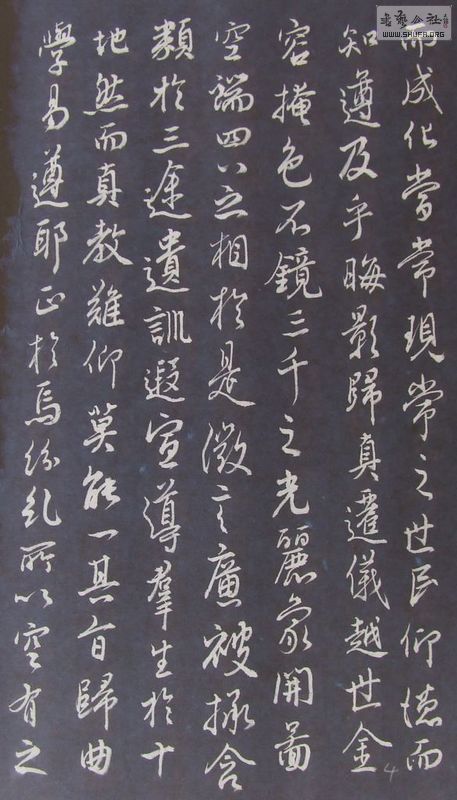 而成化當常現常之世民仰德而
知遵及乎晦影歸真遷儀越世金
容掩色不鏡三千之光麗象開圖
空端四八之相於是微言廣被拯含
類於三途遺訓遐宣導羣生於十
地然而真教難仰莫能一其旨歸曲
學易遵耶正於焉紛糺所以空有之
4
書藝公社
WWW.SHUFA.ORG